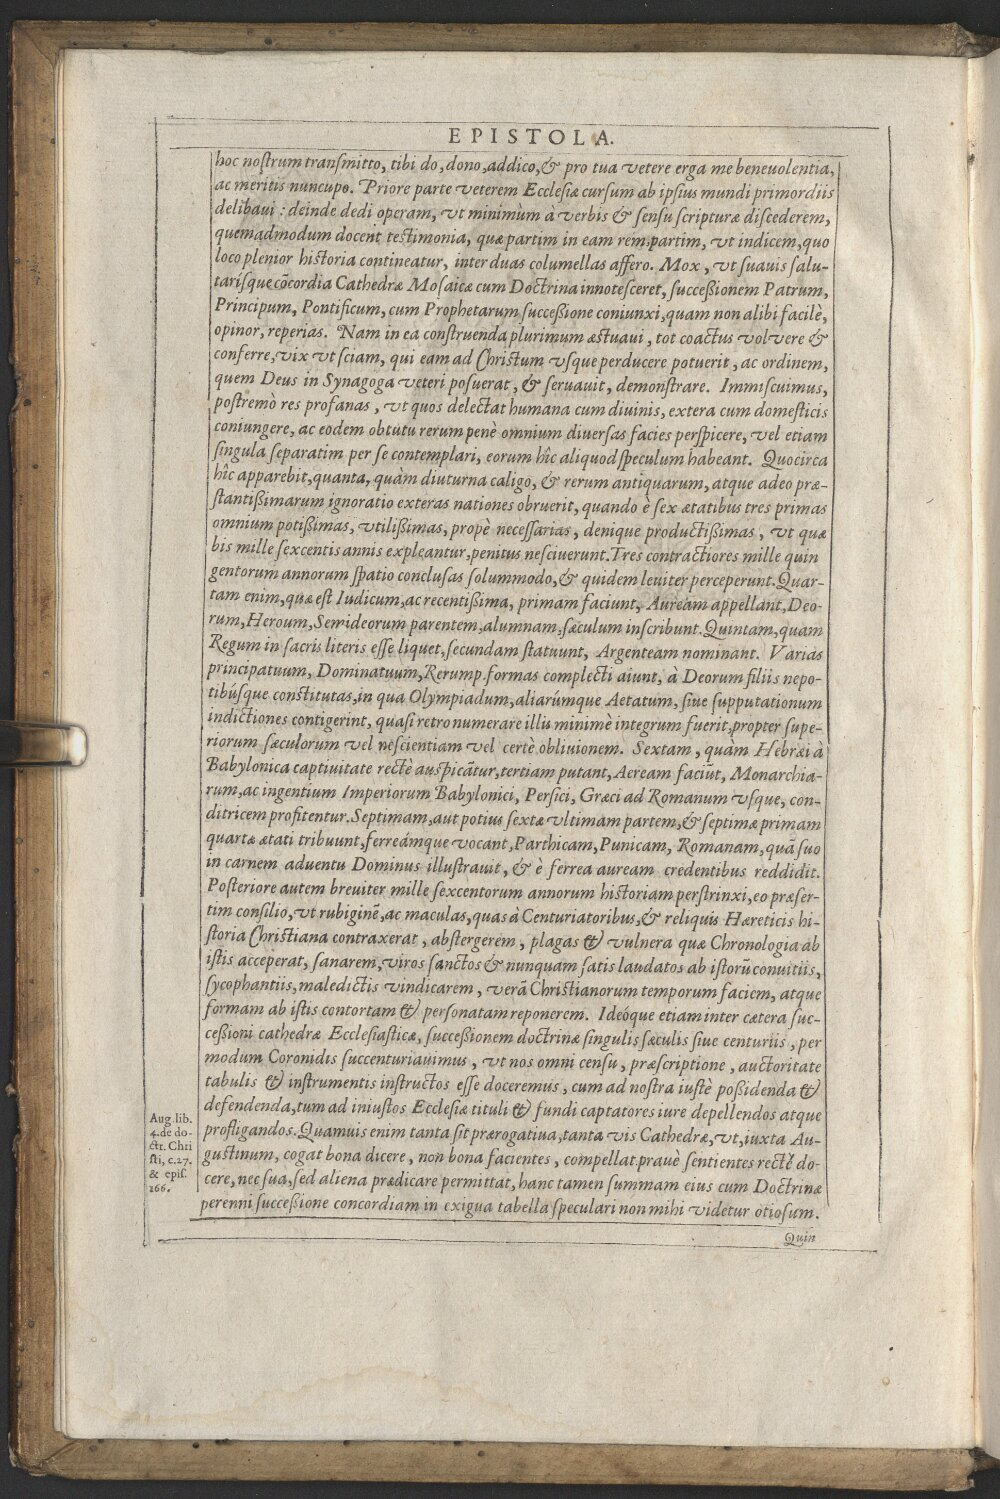 EPISTOLA.
hoc nostrum transmitto, tibi do, dono, addico, & pro tua vetere erga me beneuolentia,
ac meritis nuncupo. Priore parte veterem Ecclesiæ cursum ab ipsius mundi primordiis
delibaui : deinde dedi operam, vt minimùm à verbis & sensu scripturæ discederem,
quemadmodum docent testimonia, quæ partim in eam rem, partim, vt indicem, quo
loco plenior historia contineatur, inter duas columellas affero. Mox, vt suauis salu-
tarisque cõcordia Cathedræ Mosaicæ cum Doctrina innotesceret, successionem Patrum,
Principum, Pontificum, cum Prophetarum successione coniunxi, quam non alibi facilè,
opinor, reperias. Nam in ea construenda plurimum æstuaui, tot coactus volvere &
conferre, vix vt sciam, qui eam ad Christum vsque perducere potuerit, ac ordinem,
quem Deus in Synagoga veteri posuerat, & seruauit, demonstrare. Immiscuimus,
postremò res profanas, vt quos delectat humana cum diuinis, extera cum domesticis
coniungere, ac eodem obtutu rerum penè omnium diuersas facies perspicere, vel etiam
singula separatim per se contemplari, eorum hîc aliquod speculum habeant. Quocirca
hîc apparebit, quanta, quàm diuturna caligo, & rerum antiquarum, atque adeo præ-
stantißimarum ignoratio exteras nationes obruerit, quando è sex ætatibus tres primas
omnium potißimas, vtilißimas, propè necessarias, denique productißimas, vt quæ
bis mille sexcentis annis expleantur, penitus nesciuerunt. Tres contractiores mille quin
gentorum annorum spatio conclusas solummodo, & quidem leuiter perceperunt. Quar-
tam enim, quæ est Iudicum, ac recentißima, primam faciunt, Auream appellant, Deo-
rum, Heroum, Semideorum parentem, alumnam, sæculum inscribunt. Quintam, quam
Regum in sacris literis esse liquet, secundam statuunt, Argenteam nominant. Varias
principatuum, Dominatuum, Rerump. formas complecti aiunt, à Deorum filiis nepo-
tibúsque constitutas, in qua Olympiadum, aliarúmque Aetatum, siue supputationum
indictiones contigerint, quasi retro numerare illis minimè integrum fuerit, propter supe-
riorum sæculorum vel nescientiam vel certè obliuionem. Sextam, quàm Hebræi à
Babylonica captiuitate rectè auspicãtur, tertiam putant, Aeream faciũt, Monarchia-
rum, ac ingentium Imperiorum Babylonici, Persici, Græci ad Romanum vsque, con-
ditricem profitentur. Septimam, aut potius sextæ vltimam partem, & septimæ primam
quartæ ætati tribuunt, ferreámque vocant, Parthicam, Punicam, Romanam, quã suo
in carnem aduentu Dominus illustrauit, & è ferrea auream credentibus reddidit.
Posteriore autem breuiter mille sexcentorum annorum historiam perstrinxi, eo præser-
tim consilio, vt rubiginẽ, ac maculas, quas à Centuriatoribus, & reliquis Hæreticis hi-
storia Christiana contraxerat, abstergerem, plagas & vulnera quæ Chronologia ab
istis acceperat, sanarem, viros sanctos & nunquam satis laudatos ab istorũ conuitiis,
sycophantiis, maledictis vindicarem, verã Christianorum temporum faciem, atque
formam ab istis contortam & personatam reponerem. Ideóque etiam inter cætera suc-
ceßioni cathedræ Ecclesiasticæ, succeßionem doctrinæ singulis sæculis siue centuriis, per
modum Coronidis succenturiauimus, vt nos omni censu, præscriptione, auctoritate
tabulis & instrumentis instructos esse doceremus, cum ad nostra iustè poßidenda &
defendenda, tum ad iniustos Ecclesiæ tituli & fundi captatores iure depellendos atque
profligandos. Quamuis enim tanta sit prærogatiua, tanta vis Cathedræ, vt, iuxta Au-
gustinum, cogat bona dicere, non bona facientes, compellat prauè sentientes rectè do-
cere, nec sua, sed aliena prædicare permittat, hanc tamen summam eius cum Doctrinæ
perenni succeßione concordiam in exigua tabella speculari non mihi videtur otiosum.
Quin
Aug lib.
4.de do-
ctr. Chri
sti, c.27.
& epis.
166.